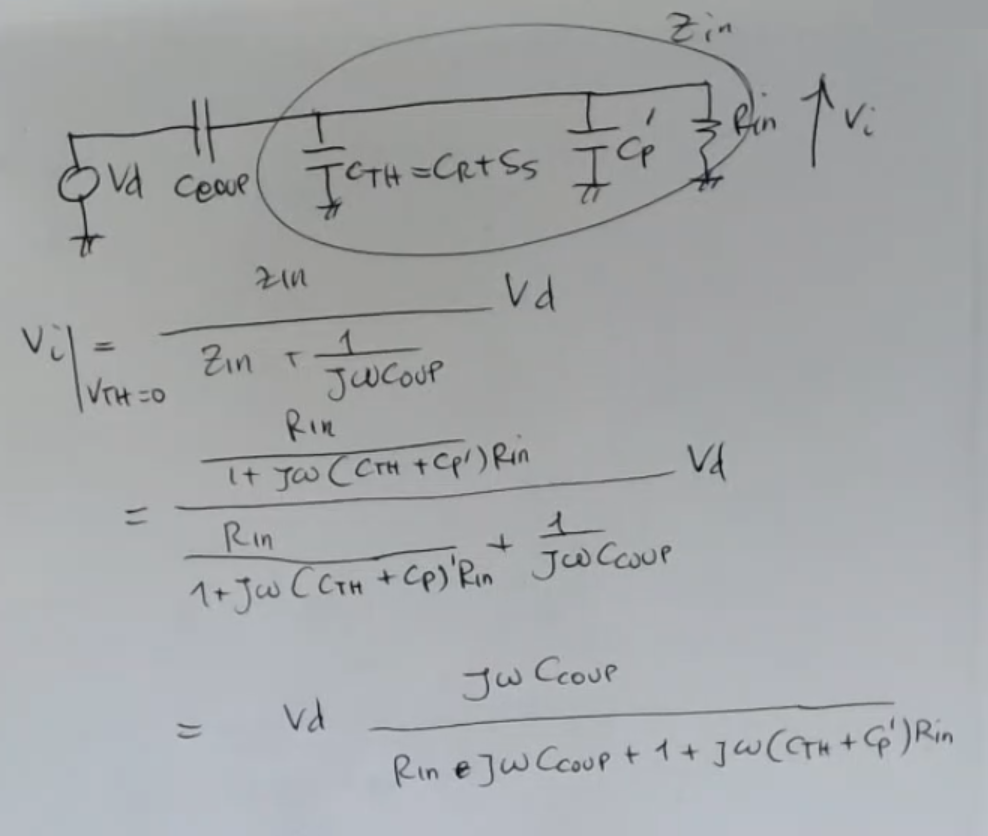 Zin
Vd Ccoup CTH = CR + Ss Cp' Rin Vi
Zin
Vi|VTH=0 = ――― Vd
Zin + 1/JωCoup
Rin
1 + Jω(CTH + Cp')Rin
= ――― Vd
Rin
1 + Jω(CTH + Cp)'Rin + 1/JωCcoup
JωCcoup
= Vd ―――
Rin • JωCcoup + 1 + Jω(CTH + Cp')Rin